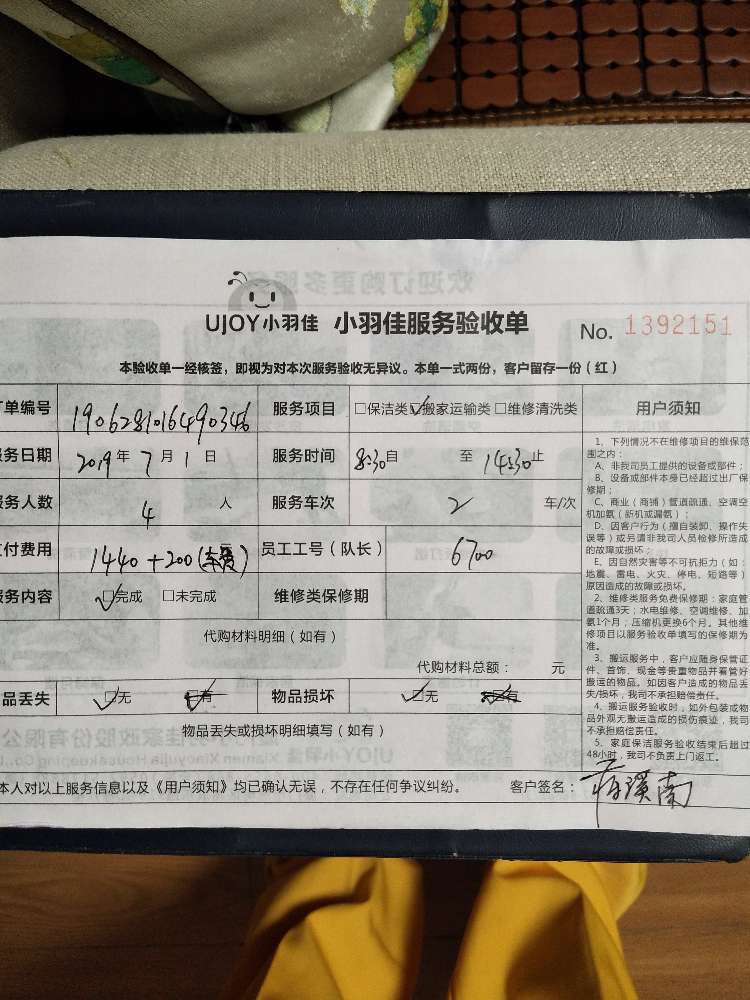 UJOY小羽佳 小羽佳服务验收单 No. 1392151
本验收单一经核签，即视为对本次服务验收无异议。本单一式两份，客户留存一份（红）
单编号 190628101649034б 服务项目 □保洁类 ☑搬家运输类 □维修清洗类 用户须知
务日期 2019年7月1日 服务时间 8:30自 至 14:30止
务人数 4 人 服务车次 2 车/次
付费用 1440+200(车费) 元 员工工号（队长） 6700
务内容 ☑完成 □未完成 维修类保修期
代购材料明细（如有）
代购材料总额： 元
品丢失 ☑无 □有 物品损坏 ☑无 □有
物品丢失或损坏明细填写（如有）
本人对以上服务信息以及《用户须知》均已确认无误，不存在任何争议纠纷。 客户签名：
1、下列情况不在维修项目的维保范
围之内：
A、非我司员工提供的设备或部件；
B、设备或部件本身已经超过出厂保
修期；
C、商业（商铺）管道疏通、空调空
机加氨（新机或漏氨）；
D、因客户行为（擅自装卸、操作失
误等）或另请非我司人员检修所造成
的故障或损坏；
E、因自然灾害等不可抗拒力（如：
地震、雷电、火灾、停电、短路等）
原因造成的故障或损坏。
2、维修类服务免费保修期：家庭管
道疏通3天；水电维修、空调维修、加
氨1个月；压缩机更换6个月。其他维
修项目以服务验收单填写的保修期为
准。
3、搬运服务中，客户应随身保管证
件、首饰、现金等贵重物品并看管好
搬运的物品。如因客户造成的物品丢
失/损坏，我司不承担赔偿责任。
4、搬运服务验收时，如外包装或物
品外观无搬运造成的损伤痕迹，我司
不承担赔偿责任。
5、家庭保洁服务验收结束后超过
48小时，我司不负责上门返工。